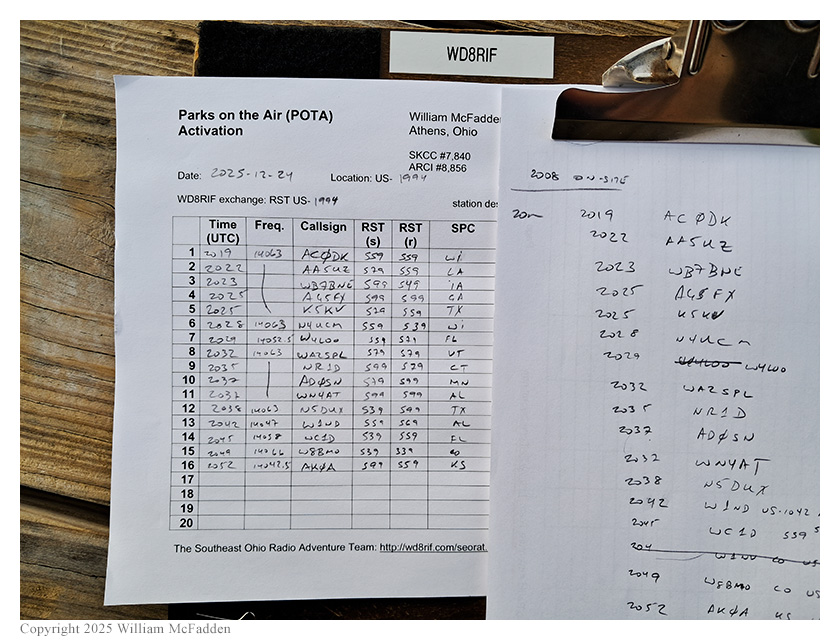 WD8RIF
Parks on the Air (POTA)
Activation
William McFadden
Athens, Ohio
SKCC #7,840
ARCI #8,856
Date: 2025-12-24 Location: US- 1994
WD8RIF exchange: RST US- 1994 station des
Time (UTC) Freq. Callsign RST (s) RST (r) SPC
1 2019 14063 ACØDK 559 559 WI
2 2022 AA5UZ 579 559 LA
3 2023 WB7BNE 599 549 IA
4 2025 AG5FX 599 599
5 2025 K5KV 579 559 TX
6 2028 14063 N4UCM 559 539 WI
7 2029 14052.5 W4LOO 559 FL
8 2032 14063 WA2SPL 579 579 VT
9 2035 NR1D 599 529 CT
10 2037 ADØSN 579 599 MN
11 2037 WN4AT 599 599 AL
12 2038 14063 N5DUX 539 599 TX
13 2042 14047 W1ND 559 569 AL
14 2045 14058 WC1D 539 559 FL
15 2049 14066 W8BMO 539 339 CO
16 2052 14042.5 AKØA 599 559 KS
17
18
19
20
The Southeast Ohio Radio Adventure Team: http://wd8rif.com/seorat.
2008 ON-SITE
20m 2019 ACØDK
2022 AA5UZ
2023 WB7BNE
2025 AG5FX
2025 K5KV
2028 N4UCM
2029 W4LOO
2032 WA2SPL
2035 NR1D
2037 ADØSN
2037 WN4AT
2038 N5DUX
2042 W1ND US-1042
2045 WC1D 559
204
2049 W8BMO CO US
2052 AKØA KS
Copyright 2025 William McFadden